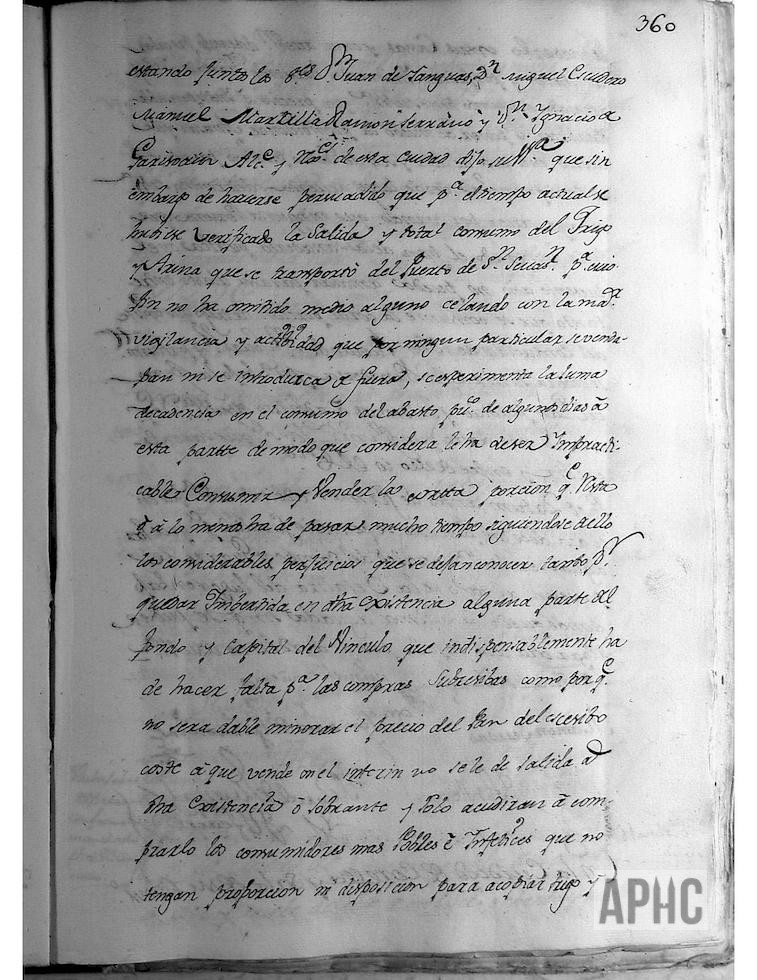 360
estando juntos los S.res D.n Juan de Sanguas, D.n Miguel Escudero
Manuel Martilla Ramon Serrano y D.n Ignacio de
Alc.e y de esta Ciudad dijo su que sin
embargo de haverse persuadido que p.a el tiempo actual se
hubiese verificado la salida y total consumo del Trigo
y Arina que se transportó del Puerto de S.n Sevas.n p.a cuio
fin no ha omitido medio alguno celando con la ma.r
vigilancia y actibidad que por ningun particular se venda
pan ni se introduzca de fuera, se experimenta la suma
decadencia en el consumo del abasto pu.co de algunos dias á
esta partte de modo que considera le ha de ser Impracti
cable Consumir y Vender la porcion q.e
q.e á lo menos ha de pasar mucho tiempo siguiendose de ello
los considerables perjuicios que se dejan conocer tanto p.r
quedar Imbertida en dha existencia alguna parte del
fondo y Capital del Vinculo que indispensablemente ha
de hacer falta p.a las compras Subcesibas como porq.e
no sera dable minorar el precio del Pan del excesibo
coste á que vende en el interin no se le de salida á
dha existencia ó sobrante y solo acudiran á com
prarlo los consumidores mas Pobres é Infelices que no
tengan proporcion ni disposicion para acopiar trigo y
APHC